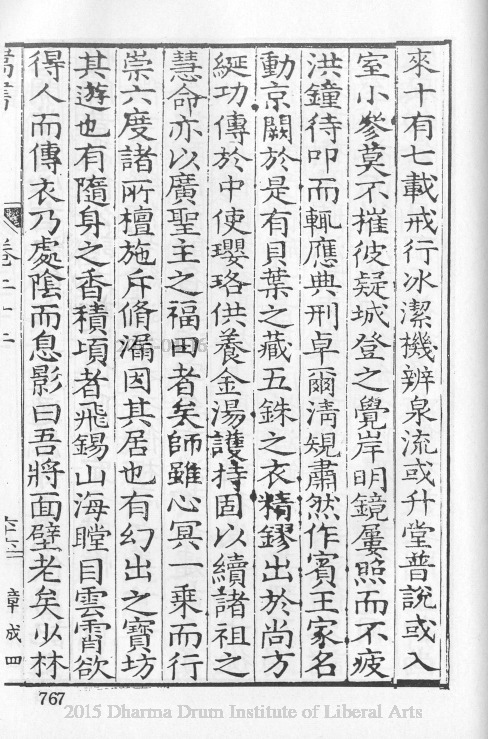 來十有七載戒行冰潔機辨泉流或升堂普說或入
室小參莫不摧彼疑城登之覺岸明鏡屢照而不疲
洪鐘待叩而輒應典刑卓爾清規肅然作賓王家名
動京闕於是有貝葉之藏五銖之衣精鏐出於尚方
綖功傳於中使瓔珞供養金湯護持固以續諸祖之
慧命亦以廣聖主之福田者矣師雖心冥一乘而行
崇六度諸所檀施斥脩漏因其居也有幻出之寶坊
其遊也有隨身之香積頃者飛錫山海瞠目雲霄欲
得人而傳衣乃處陰而息影曰吾將面壁老矣少林
卷二十二
章成四
767
2015 Dharma Drum Institute of Liberal Arts